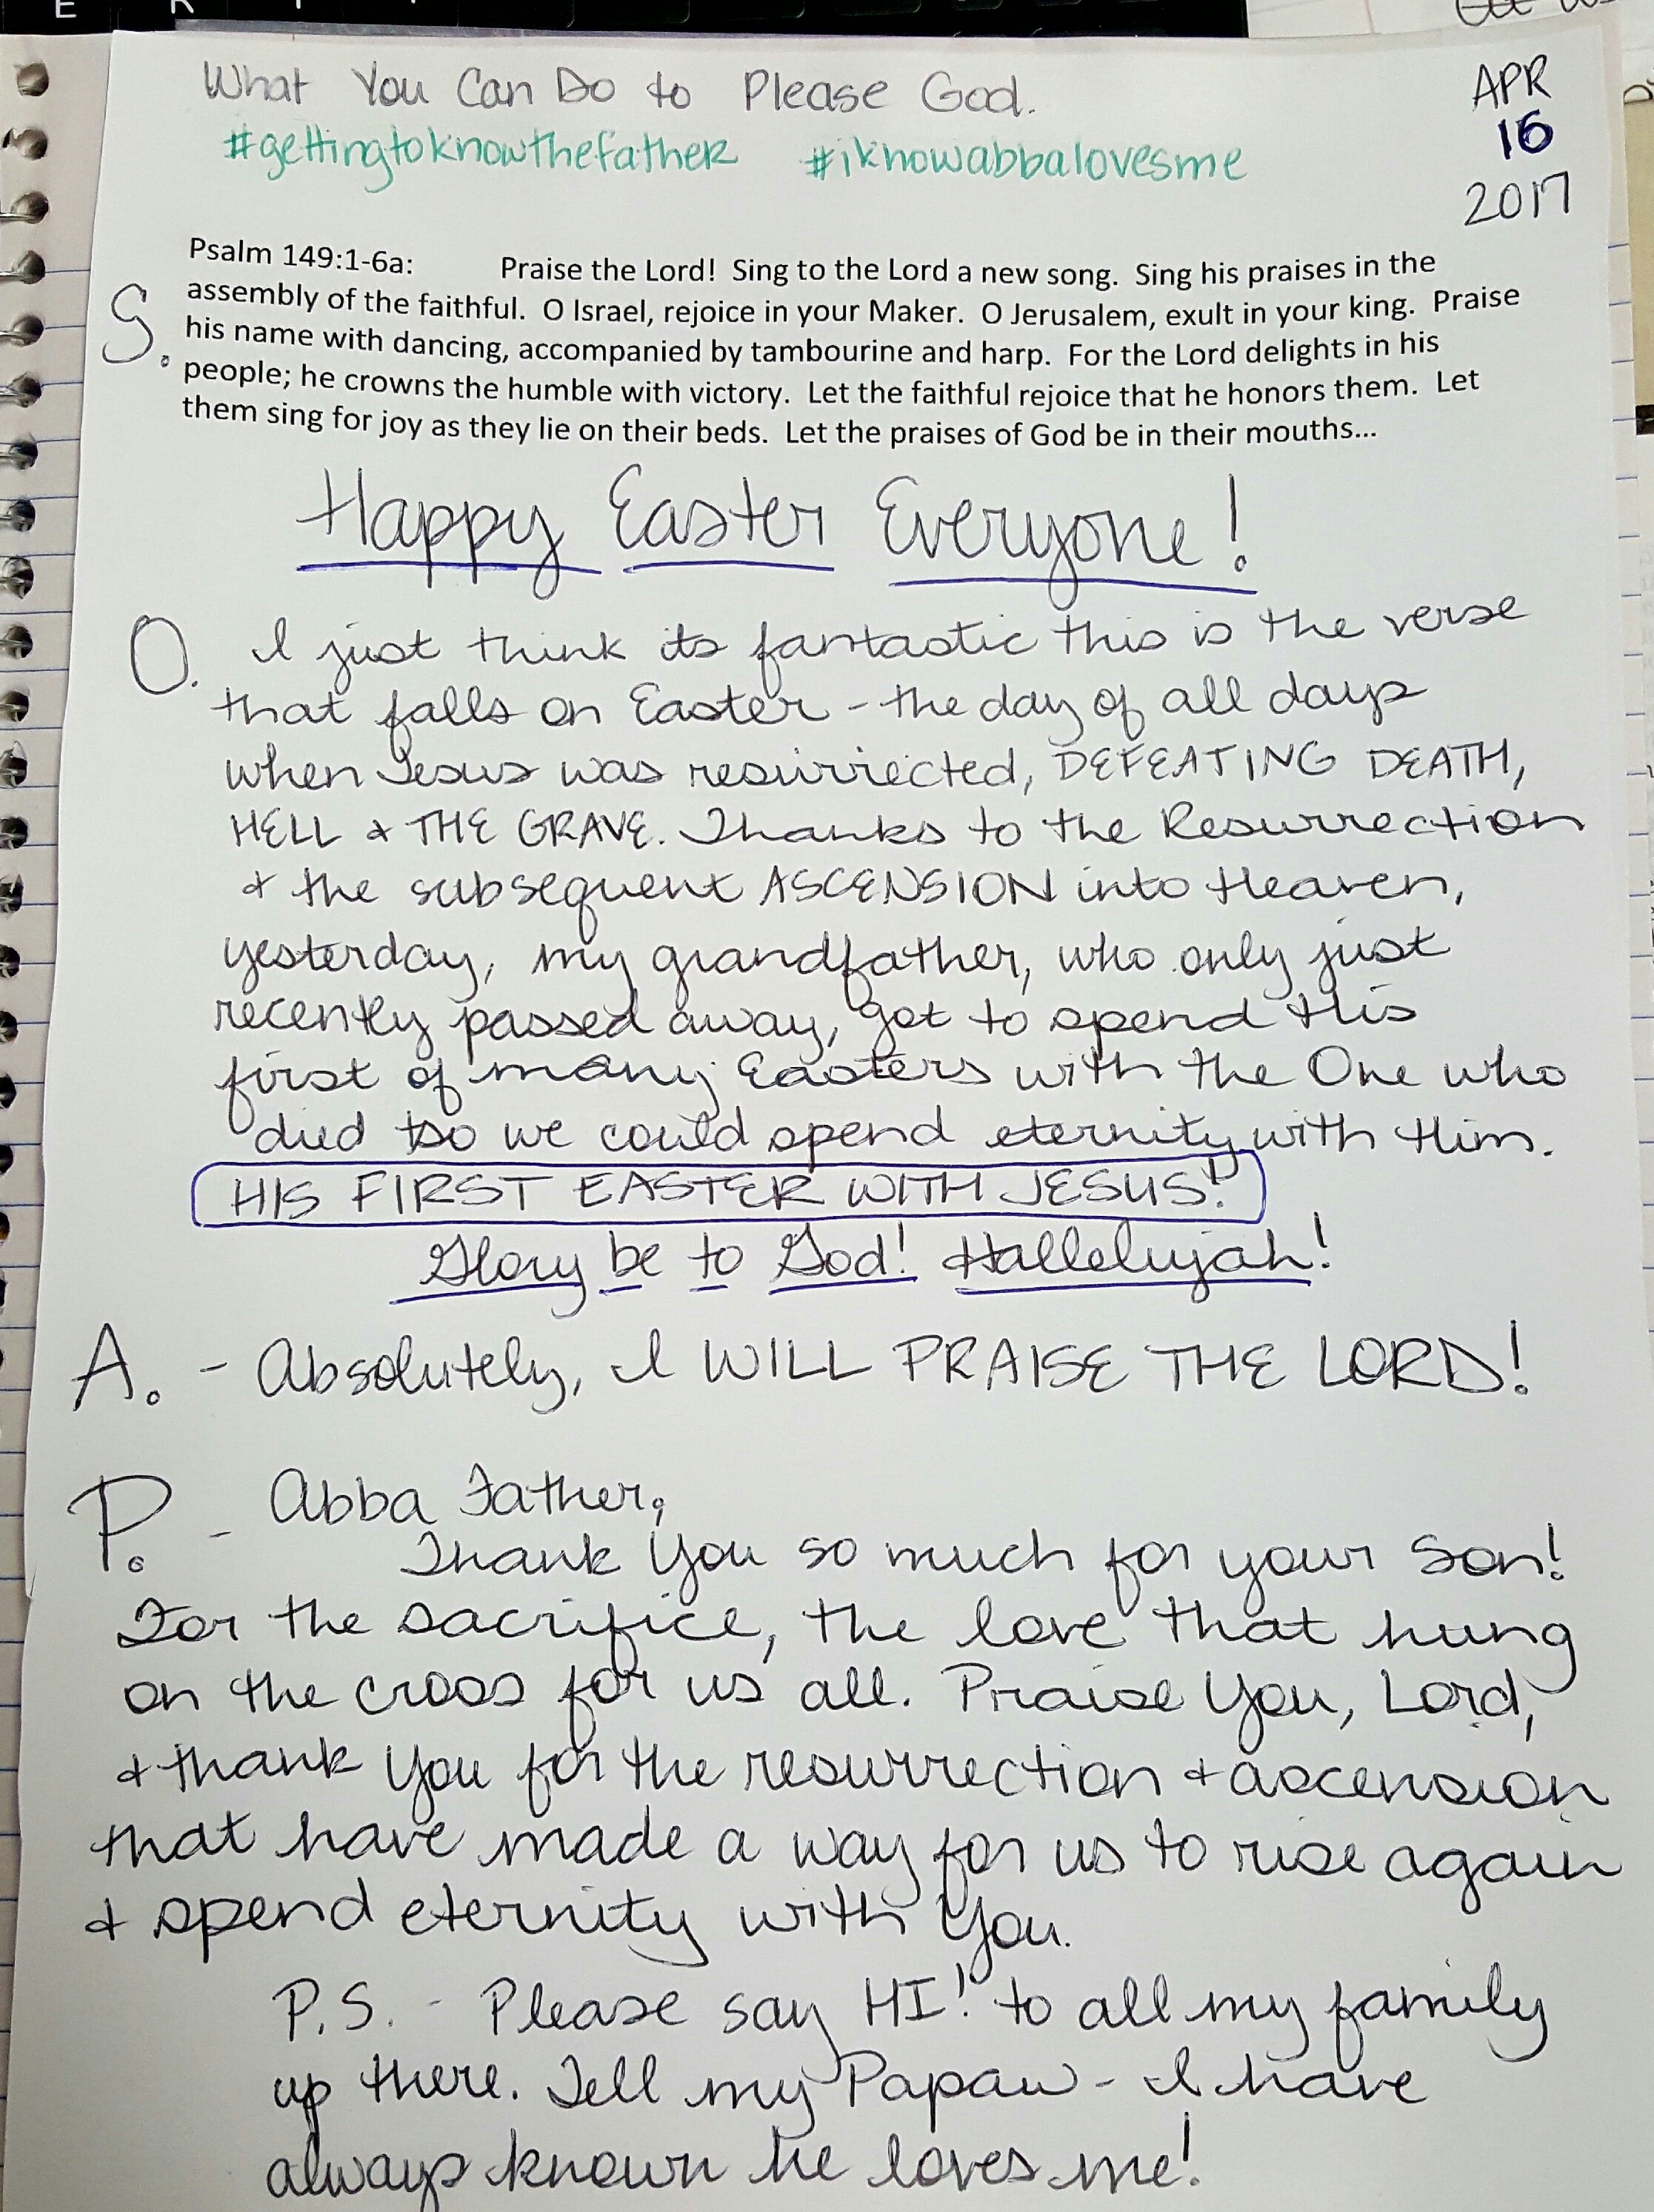 E R
What You Can Do to Please God.
APR
16
2017
#gettingtoknowthefather #iknowabbalovesme
Psalm 149:1-6a: Praise the Lord! Sing to the Lord a new song. Sing his praises in the
S. assembly of the faithful. O Israel, rejoice in your Maker. O Jerusalem, exult in your king. Praise
his name with dancing, accompanied by tambourine and harp. For the Lord delights in his
people; he crowns the humble with victory. Let the faithful rejoice that he honors them. Let
them sing for joy as they lie on their beds. Let the praises of God be in their mouths...
Happy Easter Everyone!
O. I just think its fantastic this is the verse
that falls on Easter - the day of all days
when Jesus was resurrected, DEFEATING DEATH,
HELL & THE GRAVE. Thanks to the Resurrection
& the subsequent ASCENSION into Heaven,
yesterday, my grandfather, who only just
recently passed away, got to spend His
first of many Easters with the One who
died so we could spend eternity with Him.
HIS FIRST EASTER WITH JESUS!
Glory be to God! Hallelujah!
A. - Absolutely, I WILL PRAISE THE LORD!
P. - Abba Father,
Thank You so much for your Son!
For the sacrifice, the love that hung
on the cross for us all. Praise You, Lord,
& thank You for the resurrection & ascension
that have made a way for us to rise again
& spend eternity with You.
P.S. - Please say HI! to all my family
up there. Tell my Papaw - I have
always known he loves me!